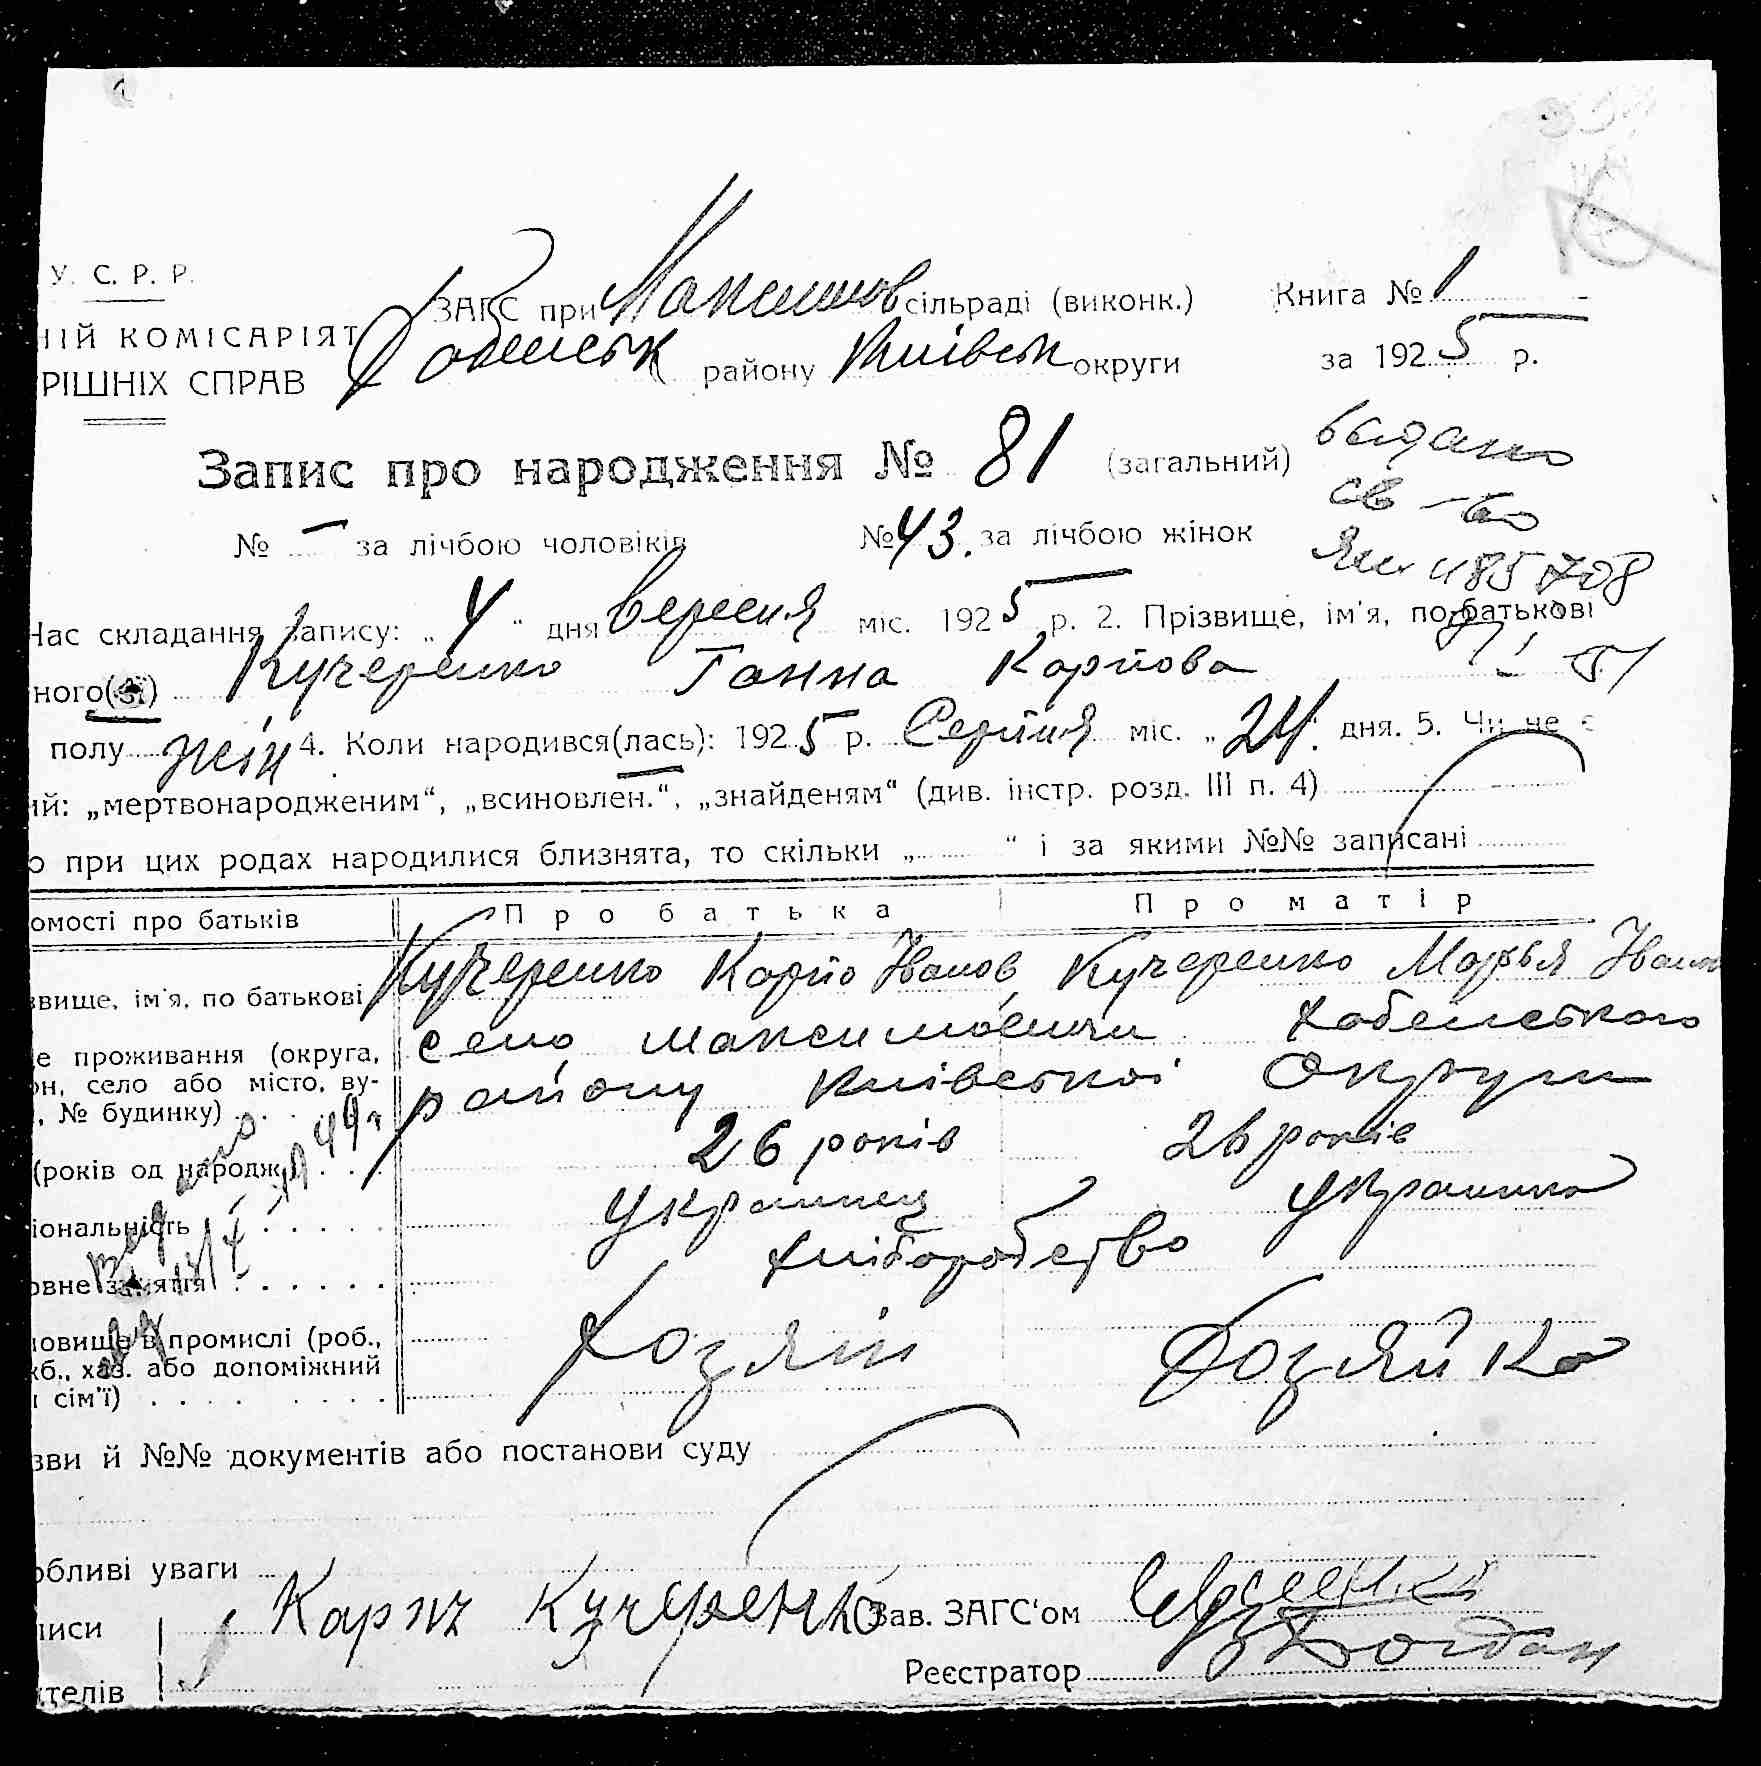 У. С. Р. Р.
ЗАГС при Максимов сільраді (виконк.) Книга № 1
НІЙ КОМІСАРІЯТ
РІШНІХ СПРАВ Хабенськ району Київськ округи за 1925 р.
Запис про народження № 81 (загальний)
видано
св-во
№ – за лічбою чоловіків № 43. за лічбою жінок
485708
Час складання запису: „4“ дня вересня міс. 1925 р. 2. Прізвище, ім'я, по батькові
ного(ої) Кучеренко Ганна Карпова
полу жін 4. Коли народився(лась): 1925 р. Серпня міс. „24“ дня. 5. Чи не є
ий: „мертвонародженим“, „всиновлен.“, „знайденям“ (див. інстр. розд. III п. 4)
о при цих родах народилися близнята, то скільки „ “ і за якими №№ записані
омості про батьків Про батька Про матір
звище, ім'я, по батькові Кучеренко Карпо Іванов Кучеренко Марья Іванов
е проживання (округа, село Максимовичи Хабенського
он, село або місто, ву-
, № будинку) району Київської Округи
(років од народж.) 26 років 26 років
іональність украинец украинка
овне заняття хліборобство
новище в промислі (роб.,
жб., хаз. або допоміжний Хозяїн Хозяйка
и сім'ї)
зви й №№ документів або постанови суду
обливі уваги
писи Карпъ Кучеренко Зав. ЗАГС'ом
Реєстратор Богдан
ителів